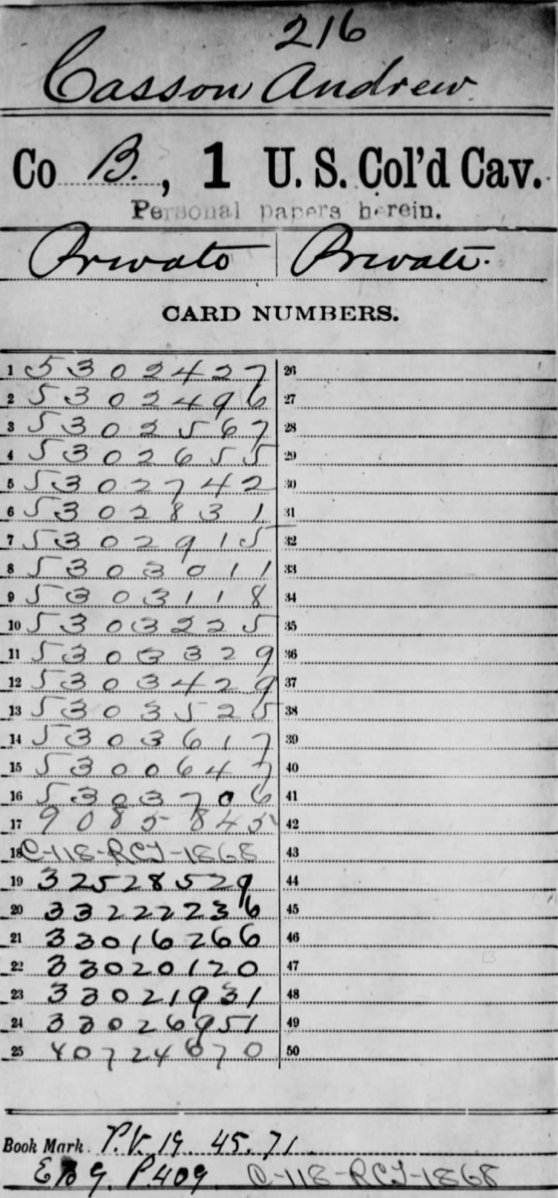 216
Casson Andrew
Co B., 1 U. S. Col'd Cav.
Personal papers herein.
Private | Private.
CARD NUMBERS.
1 5302427 26
2 5302496 27
3 5302567 28
4 5302655 29
5 5302742 30
6 5302831 31
7 5302915 32
8 5303011 33
9 5303118 34
10 5303225 35
11 5303329 36
12 5303429 37
13 5303525 38
14 5303617 39
15 5300647 40
16 5303706 41
17 9085845 42
18 C-118-RCJ-1868 43
19 32528529 44
20 33222236 45
21 33016266 46
22 33020120 47
23 33021931 48
24 33026951 49
25 40724670 50
Book Mark P.V. 19. 45. 71.
P409 C-118-RCJ-1868